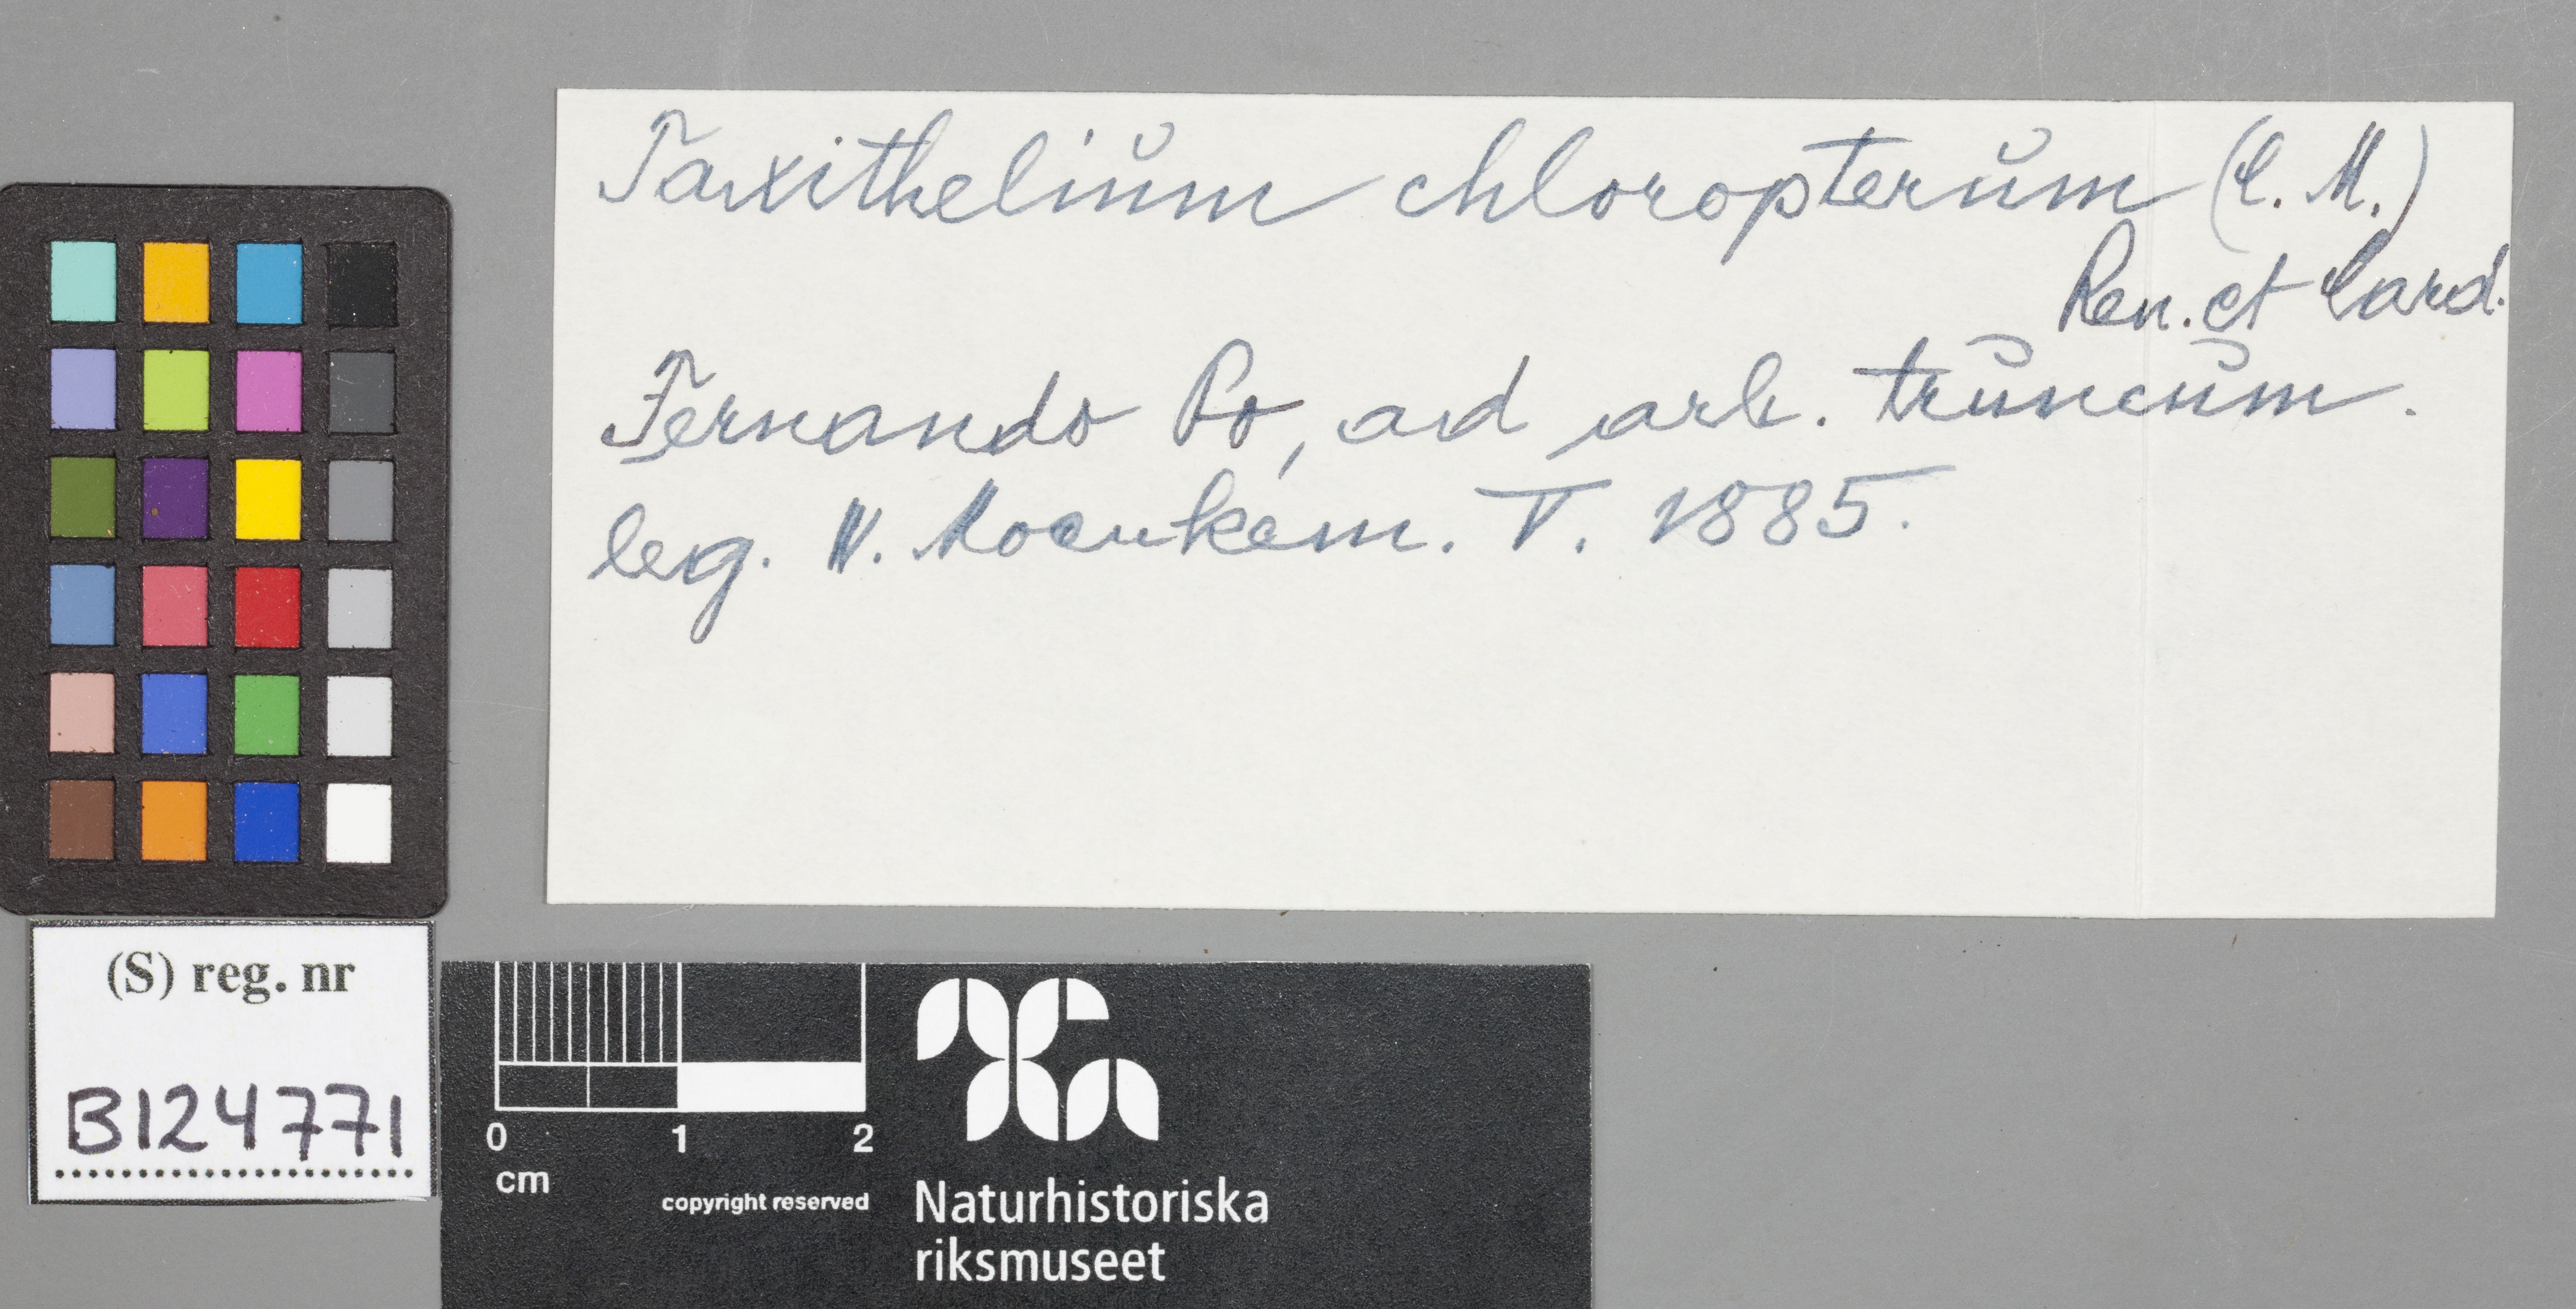 Taxithelium chloropterum (C. M.)
Ren. et Card.
Fernando Po, ad arb. truncum.
leg. N. V. 1885.
(S) reg. nr
B124771
0 1 2
cm
copyright reserved
Naturhistoriska
riksmuseet